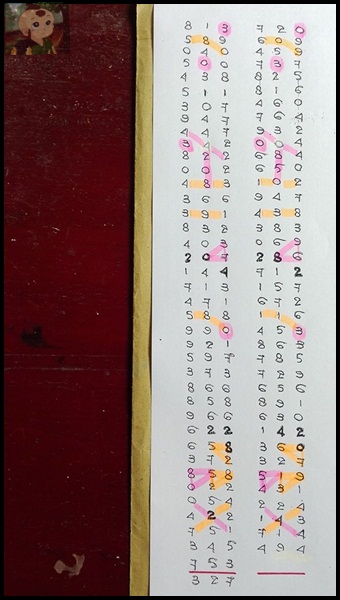 8 1 3 7 2 0
5 8 9 9
0 4 0 5 9
5 0 0 9 3 7
4 3 8 8 2 5
5 1 1 8 1 6
3 0 7 4 6 0
9 4 7 7 6 4
9 4 7 9 3 0
3 4 2 0 2 4
4 2 2 6 8 4
8 0 2 6 5 0
4 8 3 1 0 2
3 6 6 4 4 7
3 9 1 4 3 8
8 3 2 8 3 9
4 0 3 3 0 3
2 0 7 2 8 6
1 4 4 7 1 2
7 4 3 1 5 7
4 7 1 6 7 2
5 8 8 1 1 6
9 9 0 4 5 3
9 2 1 8 6 3
5 9 7 7 8 5
3 7 3 7 2 9
8 6 8 6 5 6
5 8 8 8 9 1
9 6 6 6 3 0
6 2 2 1 4 2
6 5 8 3 6 0
3 7 2 6 2 7
8 5 8 5 1 9
2 2 4 3 1
0 5 4 2 2 4
4 2 2 1 4 3
7 5 5 7 7 4
3 4 5 4 9 4
7 5 3
3 2 7